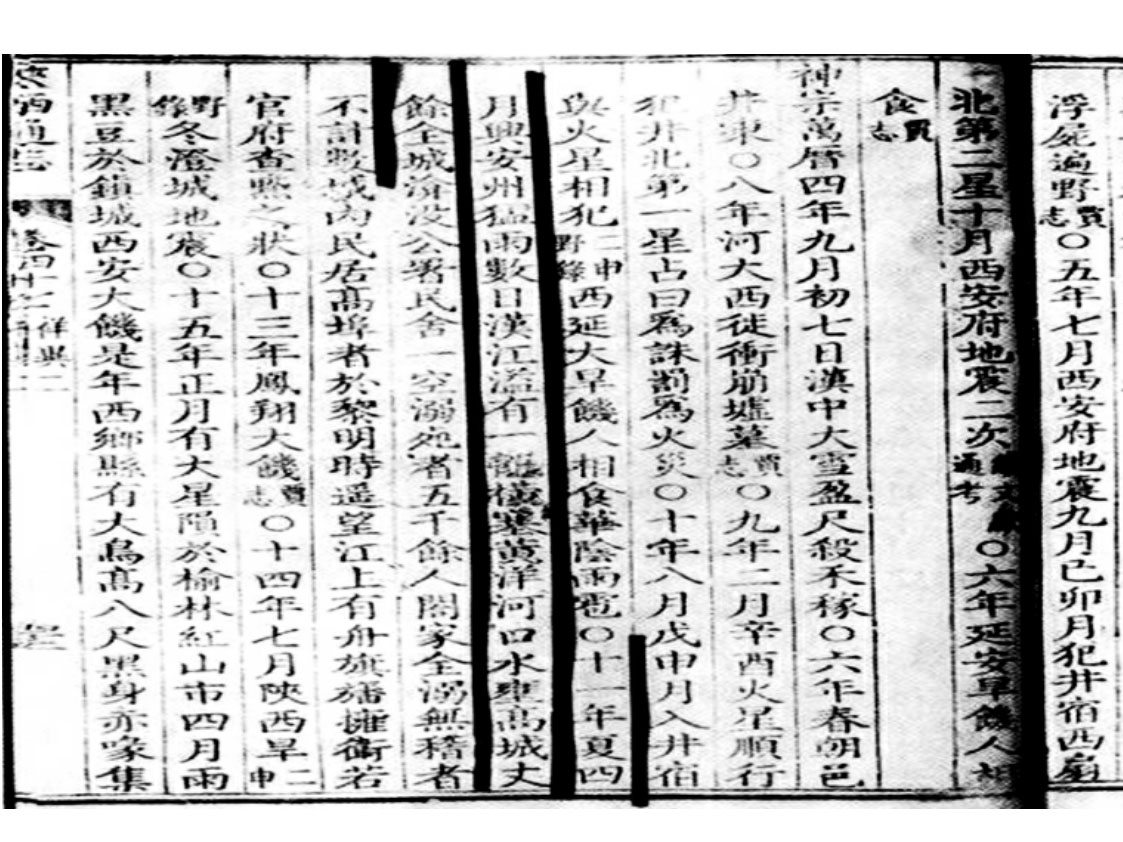 浮屍遍野賈志〇五年七月西安府地震九月己卯月犯井宿西扇
北第二星十月西安府地震二次續文獻通考〇六年延安旱饑人相
食賈志
神宗萬曆四年九月初七日漢中大雪盈尺殺禾稼〇六年春朝邑
井東〇八年河大西徙衝崩墟墓賈志〇九年二月辛酉火星順行
犯井北第一星占曰爲誅罰爲火災〇十年八月戊申月入井宿
與火星相犯二申野錄西延大旱饑人相食華陰雨雹〇十一年夏四
月興安州猛雨數日漢江溢有一龍橫塞黃洋河口水壅高城丈
餘全城渰没公署民舍一空溺死者五千餘人闔家全溺無稽者
不計數城內民居高埠者於黎明時遥望江上有舟旗旛擁衛若
官府查點之狀〇十三年鳳翔大饑賈志〇十四年七月陝西旱二申
野錄冬澄城地震〇十五年正月有大星隕於榆林紅山市四月雨
黑豆於鎮城西安大饑是年西鄉縣有大鳥高八尺黑身赤喙集
陝西通志 卷四十七 祥異二